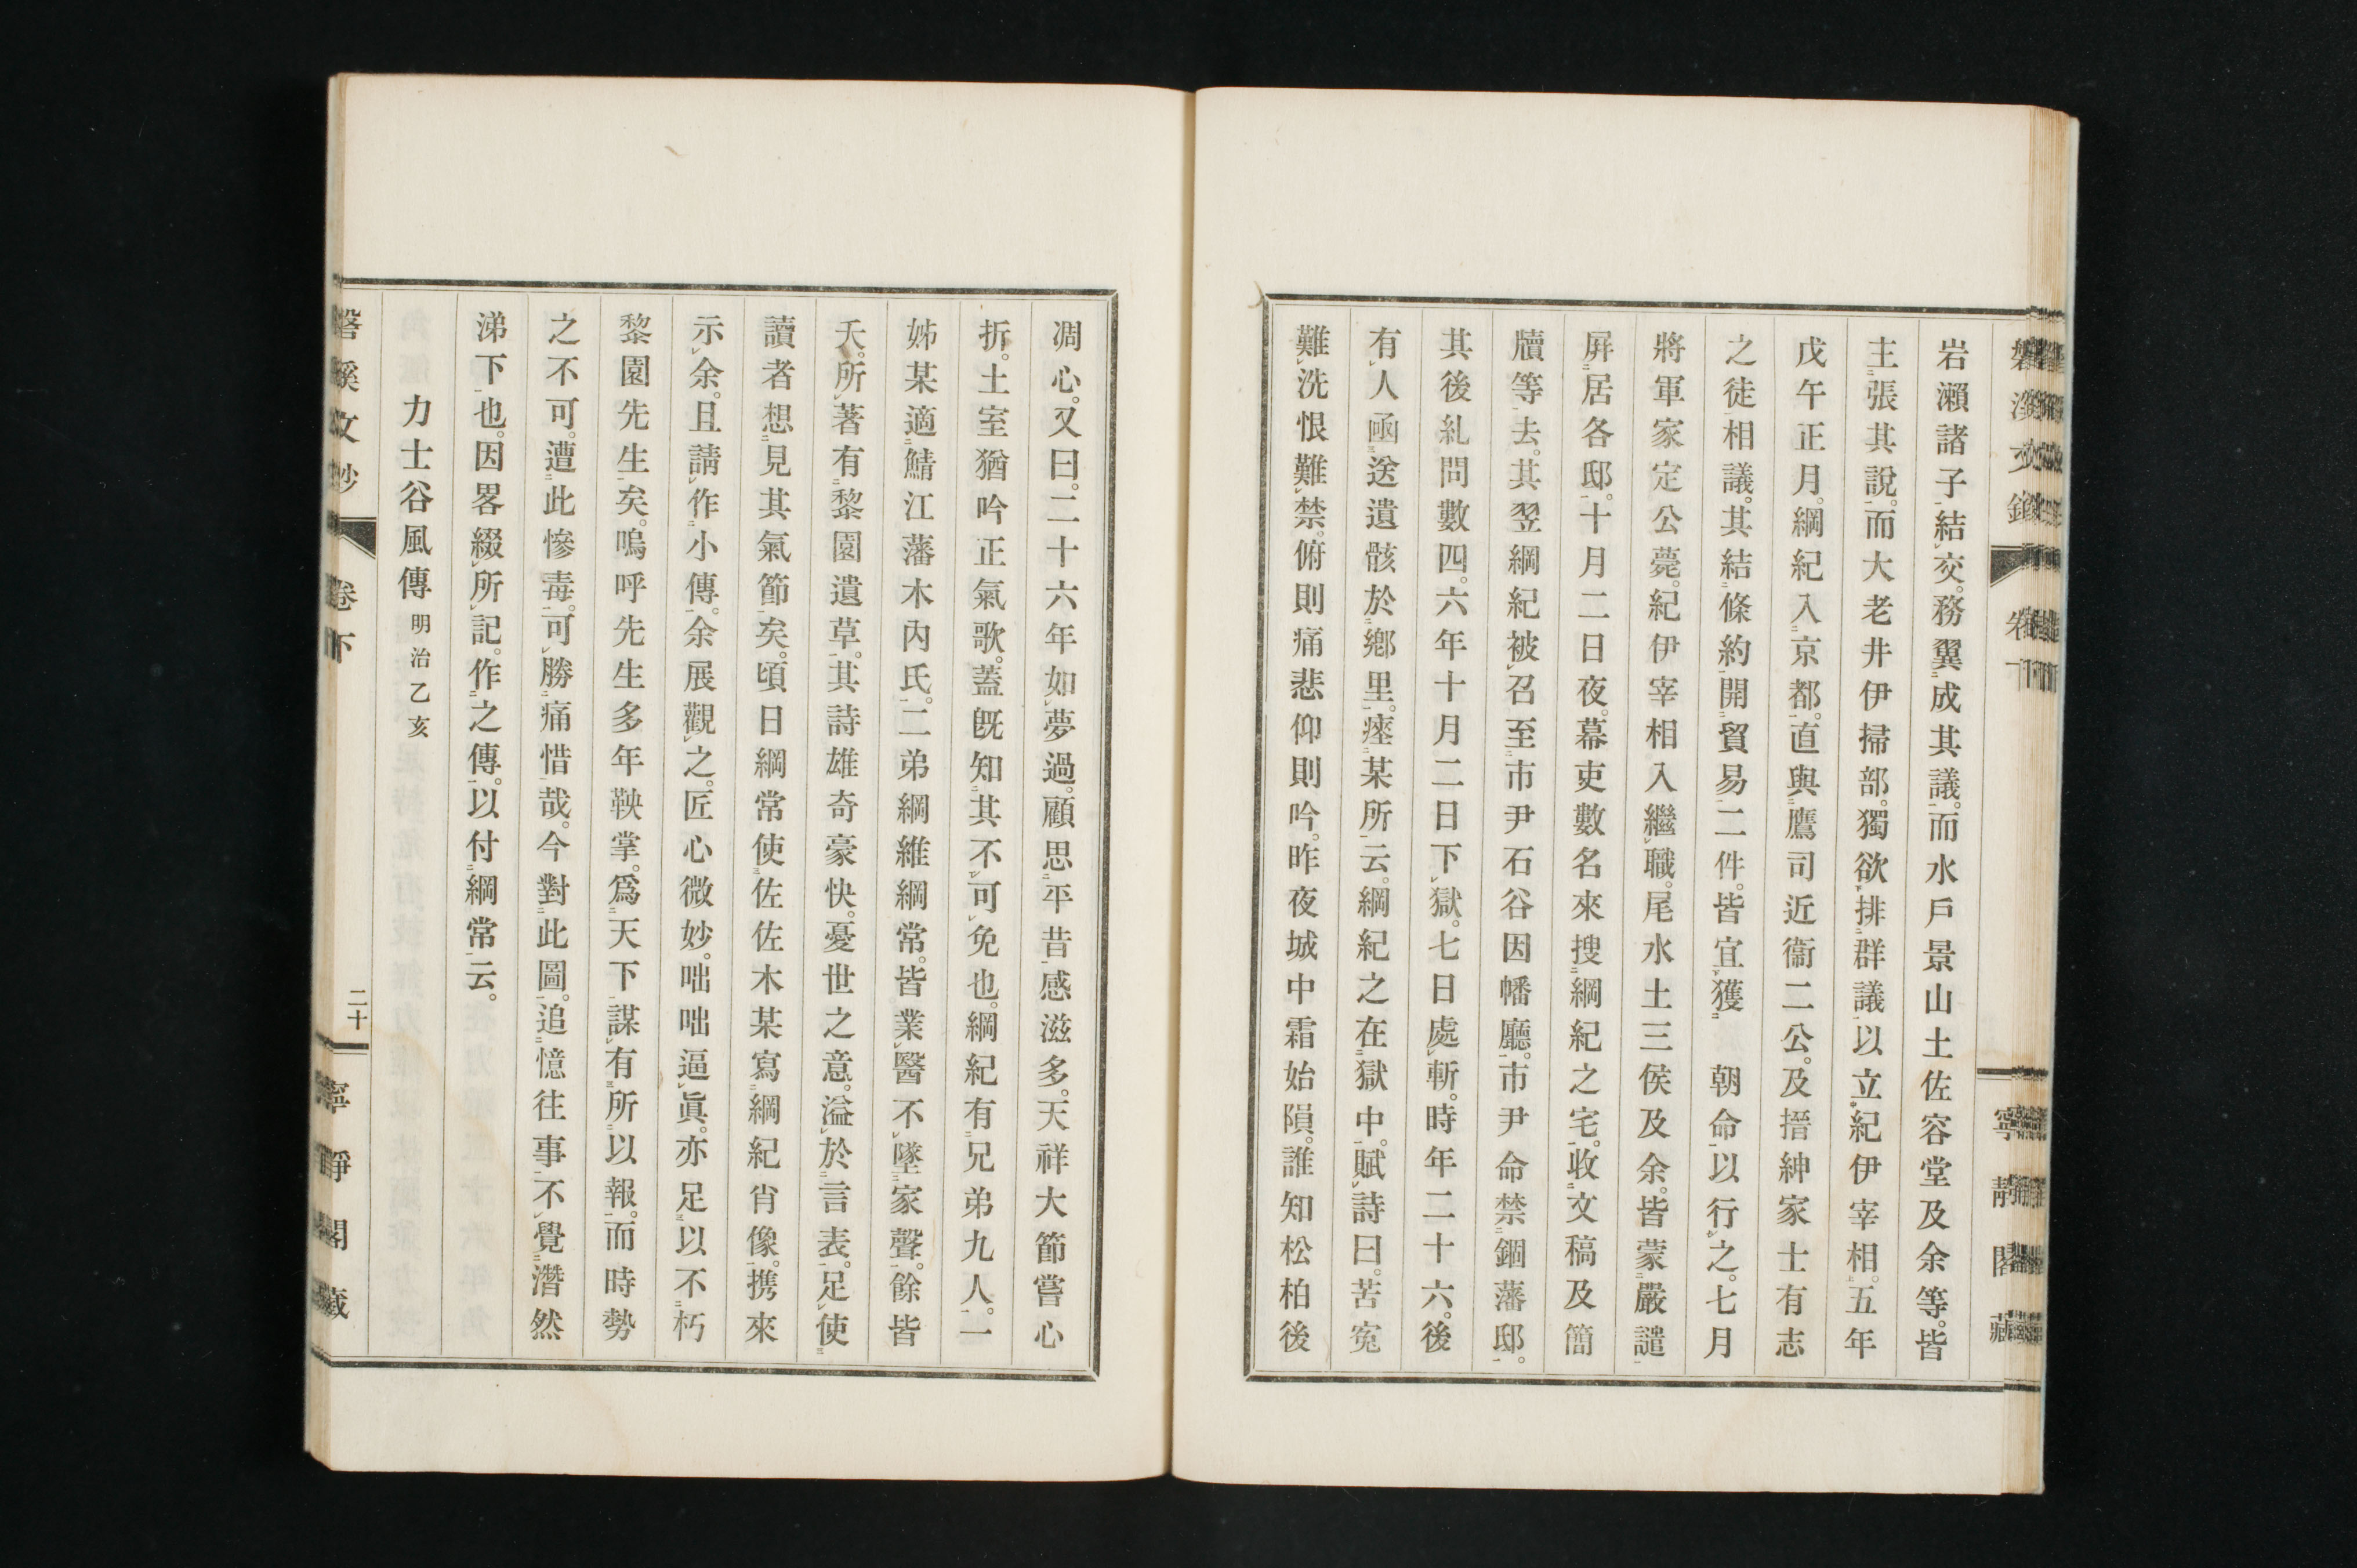 岩瀨諸子結交。務翼成其議。而水戶景山土佐容堂及余等。皆
主張其說。而大老井伊掃部。獨欲排群議以立紀伊宰相。五年
戊午正月。綱紀入京都。直與鷹司近衞二公。及搢紳家士有志
之徒相議。其結條約開貿易二件。皆宜獲　朝命以行之。七月
將軍家定公薨。紀伊宰相入繼職。尾水土三侯及余。皆蒙嚴譴
屛居各邸。十月二日夜。幕吏數名來搜綱紀之宅。收文稿及簡
牘等去。其翌綱紀被召至市尹石谷因幡廳。市尹命禁錮藩邸。
其後糺問數四。六年十月二日下獄。七日處斬。時年二十六。後
有人凾送遺骸於鄕里。瘞某所云。綱紀之在獄中。賦詩曰。苦寃
難洗恨難禁。俯則痛悲仰則吟。昨夜城中霜始隕。誰知松柏後
凋心。又曰。二十六年如夢過。顧思平昔感滋多。天祥大節嘗心
折。土室猶吟正氣歌。蓋旣知其不可免也。綱紀有兄弟九人。一
姊某適鯖江藩木內氏。二弟綱維綱常。皆業醫不墜家聲。餘皆
夭。所著有黎園遺草。其詩雄奇豪快。憂世之意。溢於言表。足使
讀者想見其氣節矣。頃日綱常使佐佐木某寫綱紀肖像。携來
示余。且請作小傳。余展觀之。匠心微妙。咄咄逼眞。亦足以不朽
黎園先生矣。嗚呼先生多年鞅掌。爲天下謀有所以報。而時勢
之不可。遭此慘毒。可勝痛惜哉。今對此圖。追憶往事不覺潸然
涕下也。因畧綴所記。作之傳。以付綱常云。
力士谷風傳 明治乙亥
磐溪文鈔 卷下 二十 寧靜閣藏